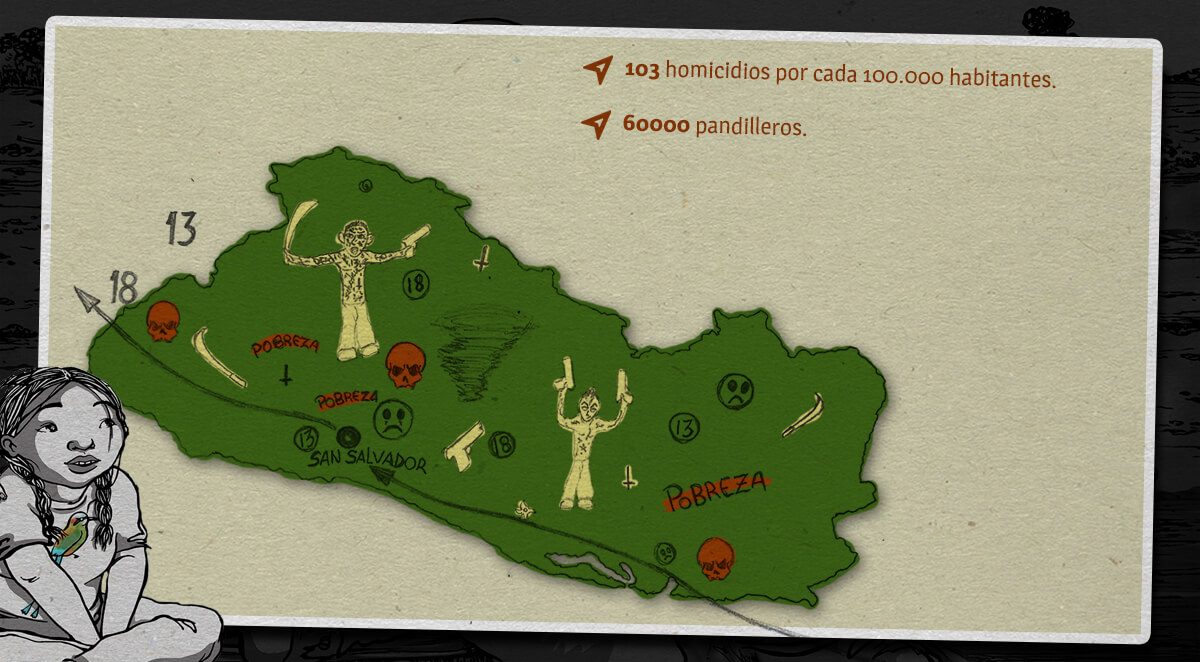 103 homicidios por cada 100.000 habitantes.
60000 pandilleros.
13
18
18
POBREZA
POBREZA
13
SAN SALVADOR
18
13
POBREZA